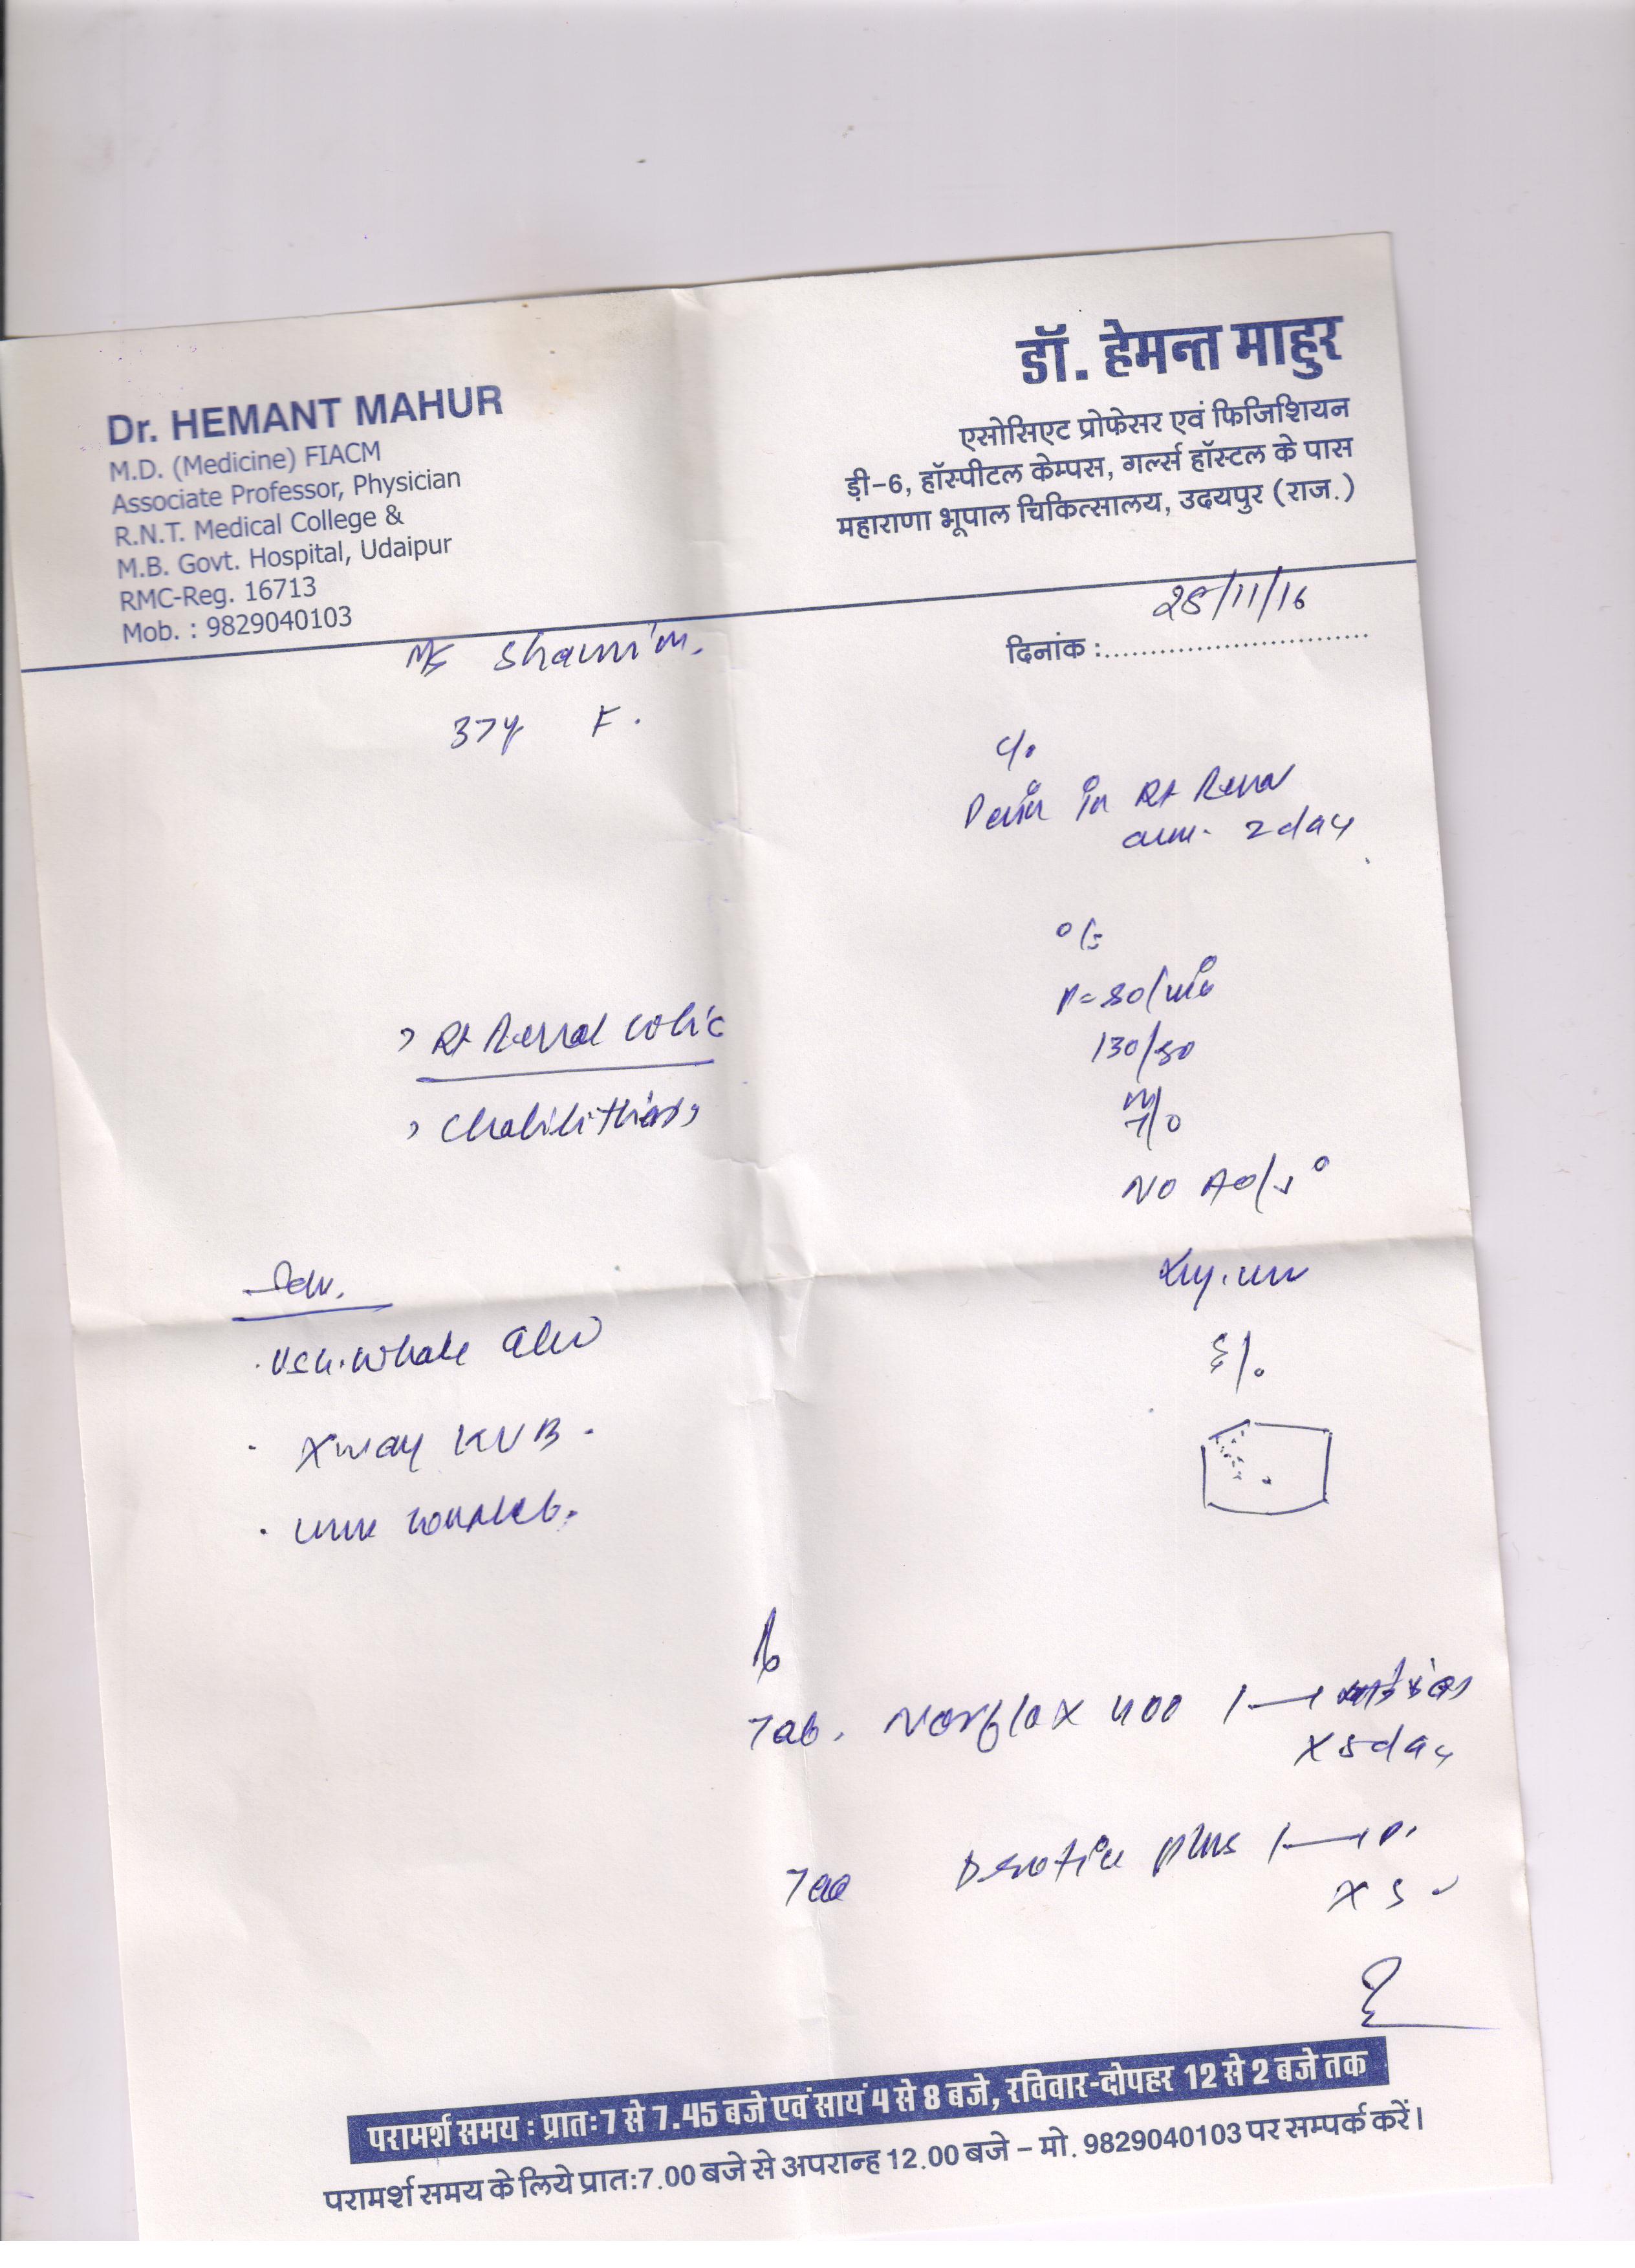 Dr. HEMANT MAHUR
M.D. (Medicine) FIACM
Associate Professor, Physician
R.N.T. Medical College &
M.B. Govt. Hospital, Udaipur
RMC-Reg. 16713
Mob. : 9829040103
डॉ. हेमन्त माहुर
एसोसिएट प्रोफेसर एवं फिजिशियन
ड़ी-6, हॉस्पीटल केम्पस, गर्ल्स हॉस्टल के पास
महाराणा भूपाल चिकित्सालय, उदयपुर (राज.)
28/11/16
दिनांक :
Shamim.
37y F.
c/o
Pain in Rt Renal
2 day
o/E
P=80/min
130/80
NO
Rt Renal colic
Adv.
USG. Whole Abd
Xray KUB.
Urine complete.
S/o
Tab. Norflox 400 1—1
x 5 day
Tab plus 1—1
x 5
परामर्श समय : प्रातः 7 से 7.45 बजे एवं सायं 4 से 8 बजे, रविवार-दोपहर 12 से 2 बजे तक
परामर्श समय के लिये प्रातः 7.00 बजे से अपरान्ह 12.00 बजे – मो. 9829040103 पर सम्पर्क करें।